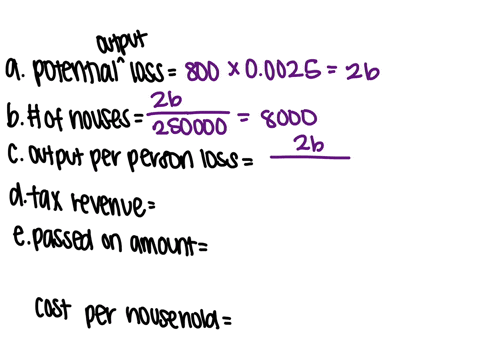 output
a. potential^ loss = 800 × 0.0025 = 2b
b. # of houses = 2b / 250000 = 8000
c. output per person loss = 2b
d. tax revenue =
e. passed on amount =
cost per household =